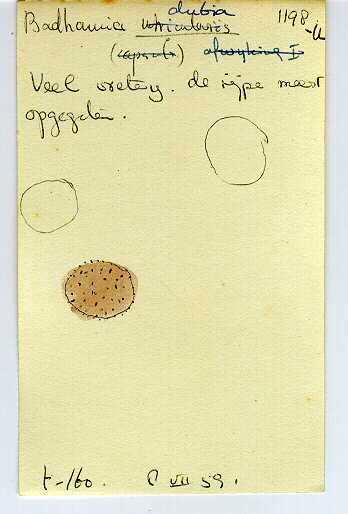 dubia
Badhamia utricularis 1198
(capsul.) afwijking I
Veel vreterij. de rijpe meest
opgegeten.
t-160. 8 VII 59.